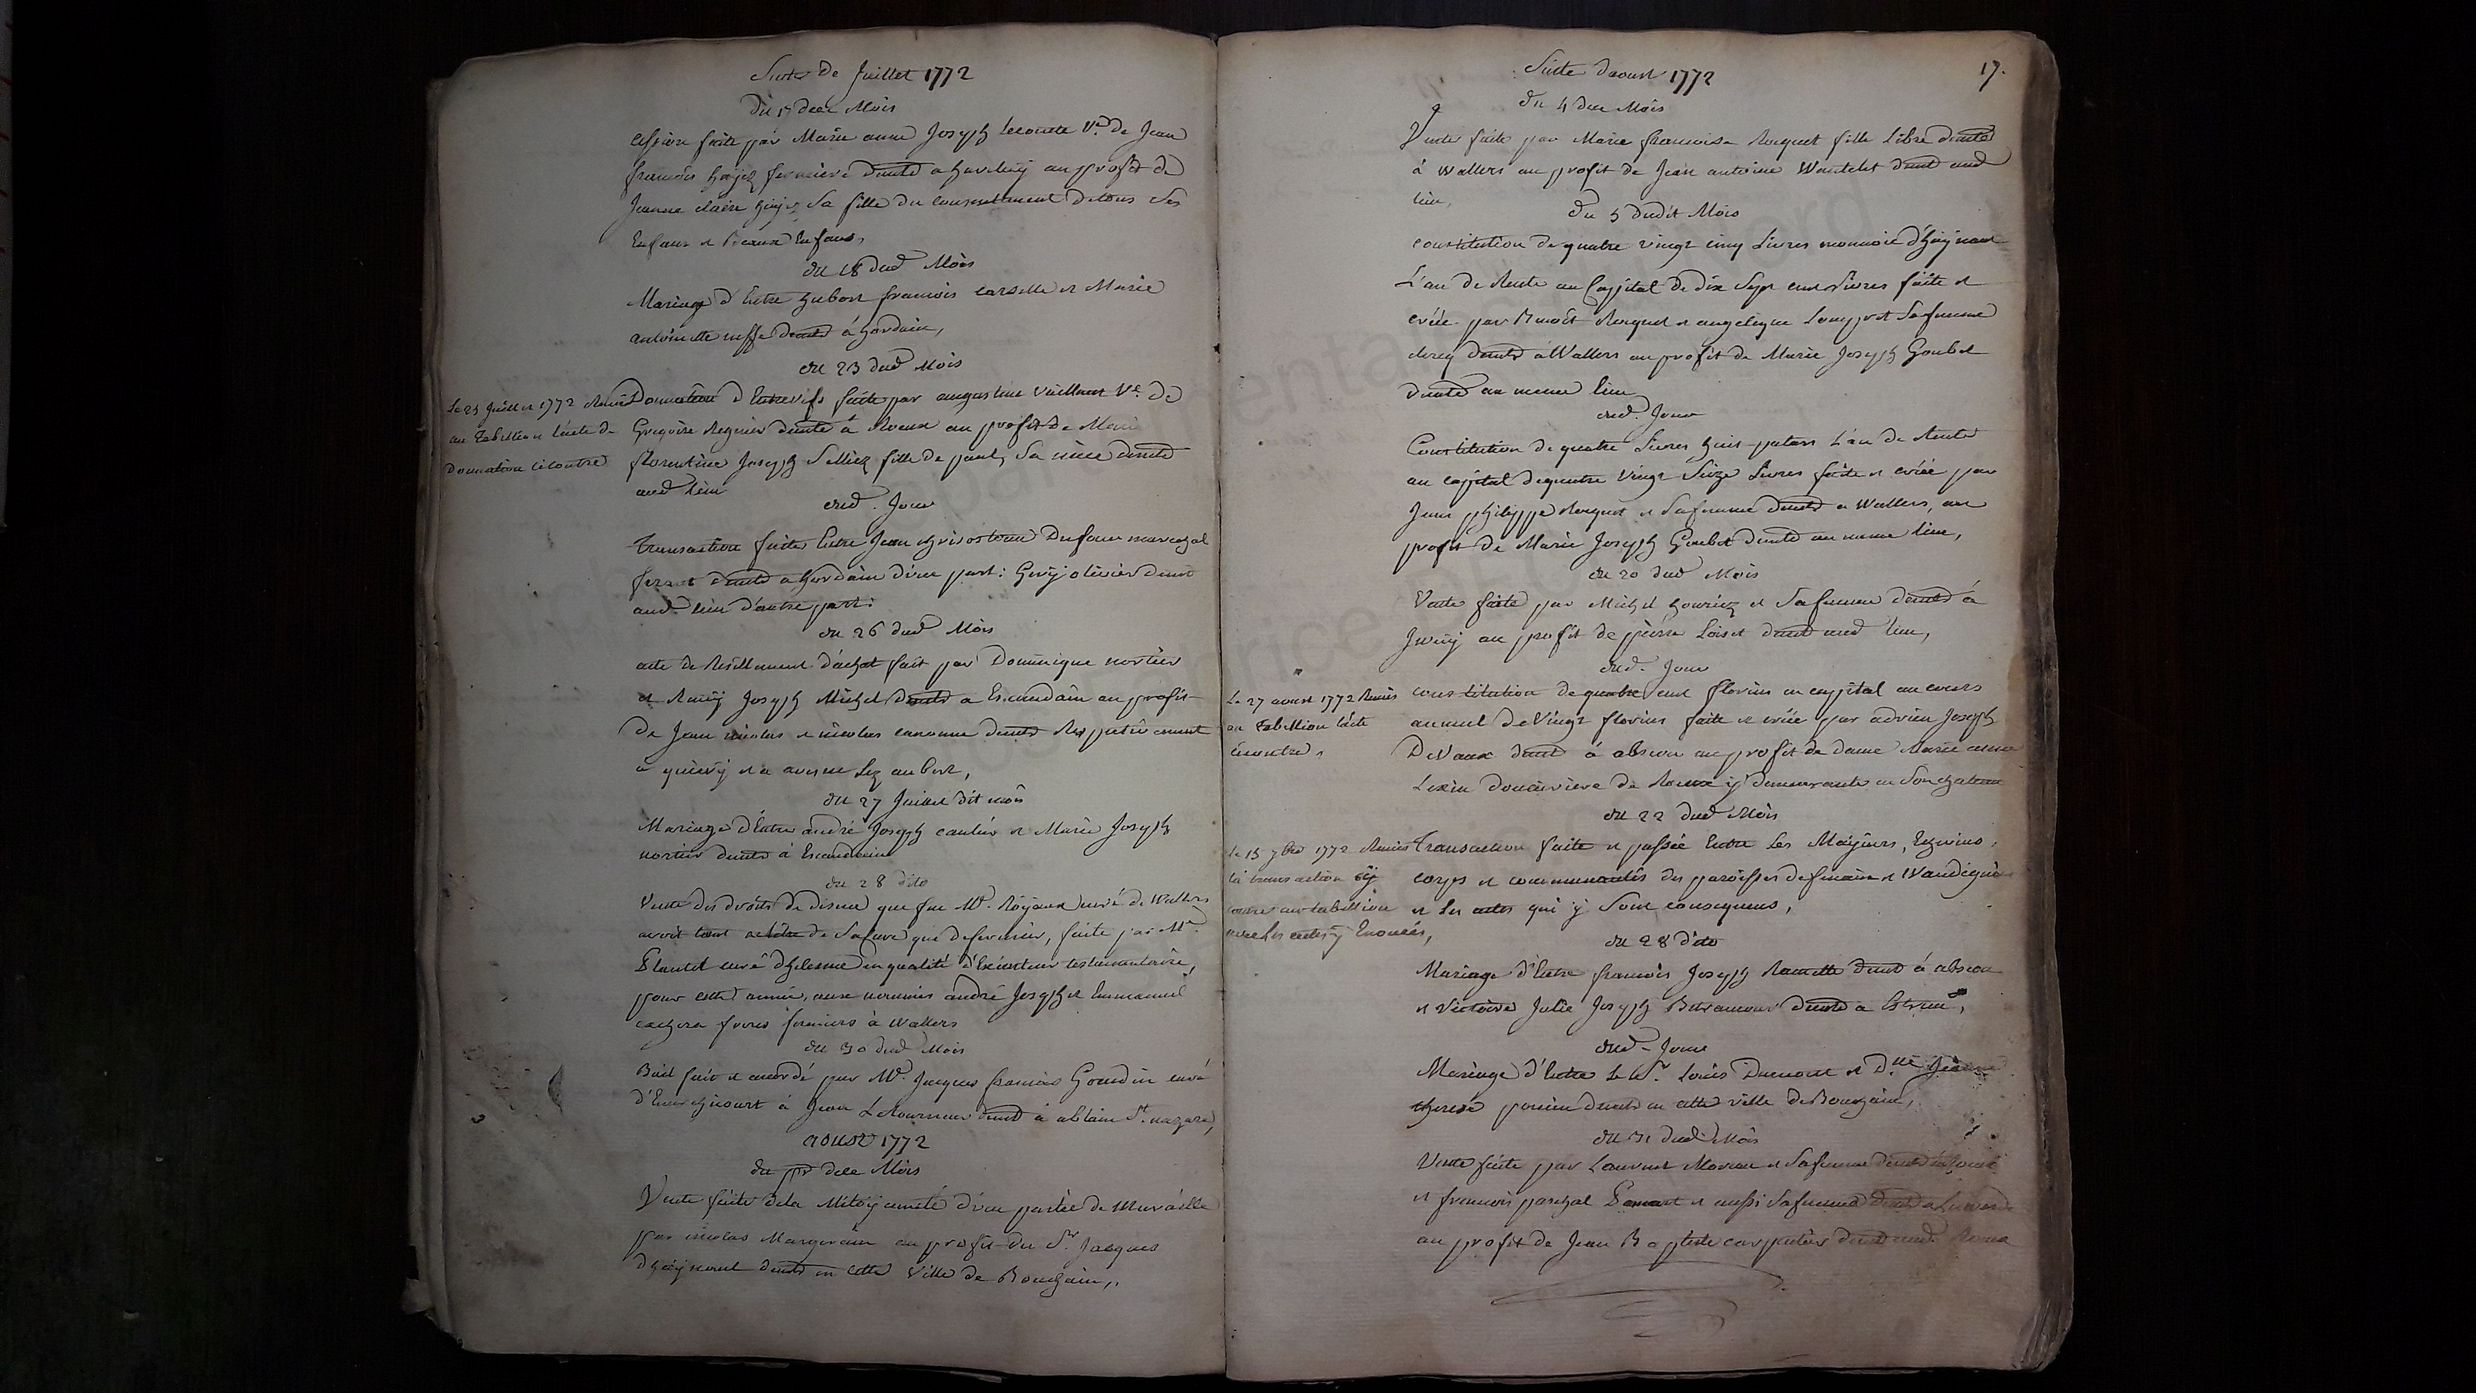 Suite de Juillet 1772
Du 17 de ce Mois
cession faite par Marie anne Joseph Lecomte Ve. de Jean
francois hajez fermiere demte a haveluy au profit de
Jeanne claire hajez Sa fille du consentement de tous ses
Enfans et Beaux Enfans,
du 18 dud. Mois
Mariage d'Entre hubert francois carselle et Marie
antoinette demte à hordain,
du 23 dud Mois
Donnation d'Entrevifs faite par augustine Vaillant Ve. de
Gregoire Regnier demte à Rœux au profit de Marie
florentine Joseph Selliez fille de paul, Sa niece demte
aud lieu
dud. Jour
Transaction faite Entre Jean chrisostome Dufour marechal
ferant demt a hordain d'une part: Gery olivier demt
aud. lieu d'autre part:
du 26 dud Mois
acte de Resillement d'achat fait par Dominique nortier
et Remy Joseph Michel demts a Escaudain au profit
de Jean nicolas et nicolas canonne demts Respectivement
a quievy et a avesne lez aubert,
du 27 Juillet dit mois
Mariage d'Entre andré Joseph caulier et Marie Joseph
nortier demts à Escaudain
du 28 dito
Vente des droits de disme que feu Mr. Royaux curé de Wallers
avoit tant de Sa Cure que desservoir, faite par Mr.
Plantel curé d'helesme en qualité d'Executeur testamentaire,
pour cette année, aux nommés andré Joseph et Emmanuel
cachera freres fermiers à Wallers
du 30 dud Mois
Bail fait et accordé par Mr. Jacques francois Gourdin curé
d'Emerchicourt à Jean Letourneur demt à ablain St. nazare,
aoust 1772
du pr de ce Mois
Vente faite de la Mitoyenneté d'une partie de muraille
par nicolas Margerin au profit du Sr. Jacques
d'haynaut demts en cette Ville de Bouchain,
Le 25 Juillet 1772 Remis
au Tabellion laite de
Donnation cicontre
Suite d'aoust 1772
17.
du 4 de ce Mois
Vente faite par Marie francoise Roquet fille libre demte
à Wallers au profit de Jean antoine Wautelet demt aud
lieu,
du 5 dudit Mois
constitution de quatre vingt cinq Livres monnoie d'haynaut
L'an de Rente au Capital de dix Sept cent Livres faite et
créée par Benoit Roquet et angelique Lompret Sa femme
demts à Wallers au profit de Marie Joseph Goubet
demte au meme lieu
dud. Jour
Constitution de quatre Livres huit patars L'an de Rente
au capital de quatre vingt Seize Livres faite et créée par
Jean philippe Roquet et Sa femme demts a Wallers, au
profit de Marie Joseph Goubet demte au meme lieu,
du 20 dud Mois
Vente faite par Michel houriez et Sa femme demts à
Jwuy au profit de pierre Loiset demt aud lieu,
dud. Jour
constitution de quatre cent florins en capital au cours
annuel de Vingt florins faite et créée par adrien Joseph
DeVaux demt à abscon au profit de dame Marie anne
douairiere de Rœux y demeurante en Son chateau
du 22 dud Mois
Transaction faite et passée Entre Les Mayeurs, Echevins,
corps et communautés des paroisses de fenain et Wandignies
et les actes qui y Sont consequens,
du 28 dito
Mariage d'Entre francois Joseph Ramette demt à abscon
et Victoire Julie Joseph Betrancourt demte a Estrun,
dud. Jour
Mariage d'Entre Le Sr. Louis Dumont et Dlle Jeanne
therese demts en cette ville de Bouchain,
du 31 dud Mois
Vente faite par Laurent Moreau et Sa femme
et francois paschal et aussi Sa femme
au profit de Jean Baptiste carpentier demt aud.
Le 27 aoust 1772 Remis
au Tabellion laite
cicontre,
le 15 7bre 1772 Remis
la transaction cy
contre au tabellion
avec les actes y Enoncés,